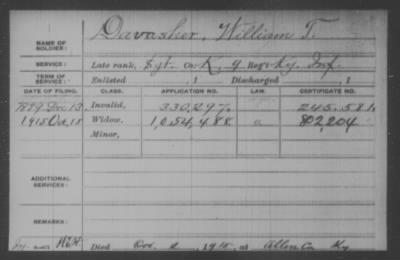 NAME OF SOLDIER: Davasher, William T.
SERVICE: Late rank, Sgt. Co. K, 9 Reg't Ky. Inf.
TERM OF SERVICE: Enlisted , 1 Discharged , 1
DATE OF FILING. CLASS. APPLICATION NO. LAW. CERTIFICATE NO.
1879 Dec 13 Invalid, 330,297. 245.581.
1915 Oct, 18 Widow, 1,054,488 a 802,204
Minor,
ADDITIONAL SERVICES:
REMARKS:
Died Oct. 2, 1915, at Allen Co Ky